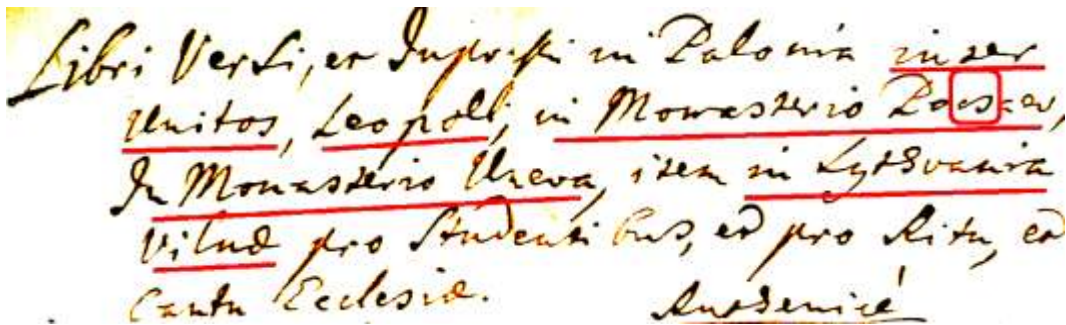 Libri Versi, et Impressi in Polonia inter
Unitos, Leopoli, in Monasterio
In Monasterio Uneva, item in Lythvania
Vilnæ pro Studentibus, et pro Ritu, et
Cantu Ecclesiæ.
Authenicé